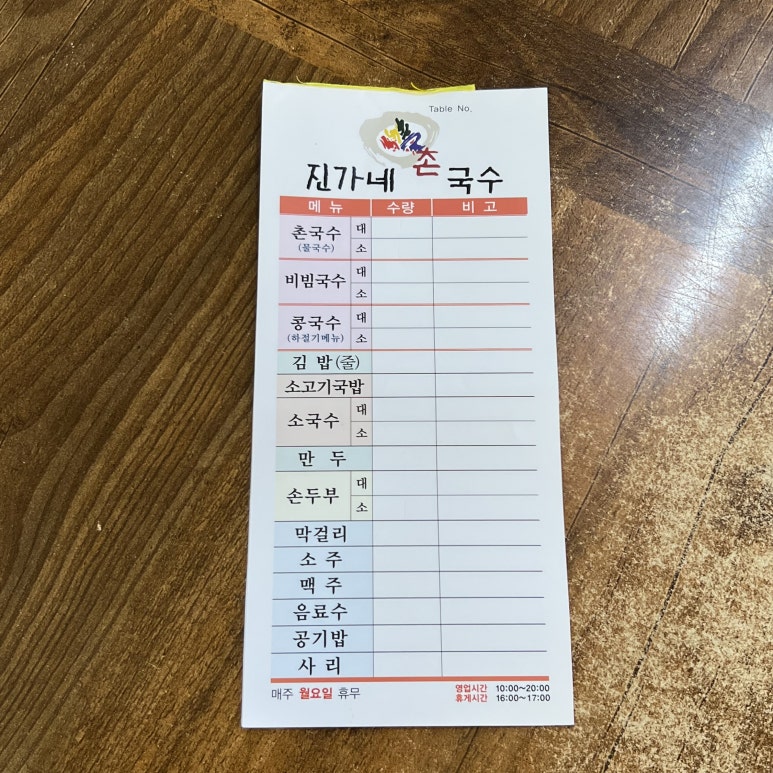 Table No.
진가네 촌 국수
메 뉴 수량 비 고
촌국수 대
(물국수) 소
비빔국수 대
소
콩국수 대
(하절기메뉴) 소
김 밥 (줄)
소고기국밥
소국수 대
소
만 두
손두부 대
소
막걸리
소 주
맥 주
음료수
공기밥
사 리
매주 월요일 휴무
영업시간 10:00~20:00
휴게시간 16:00~17:00